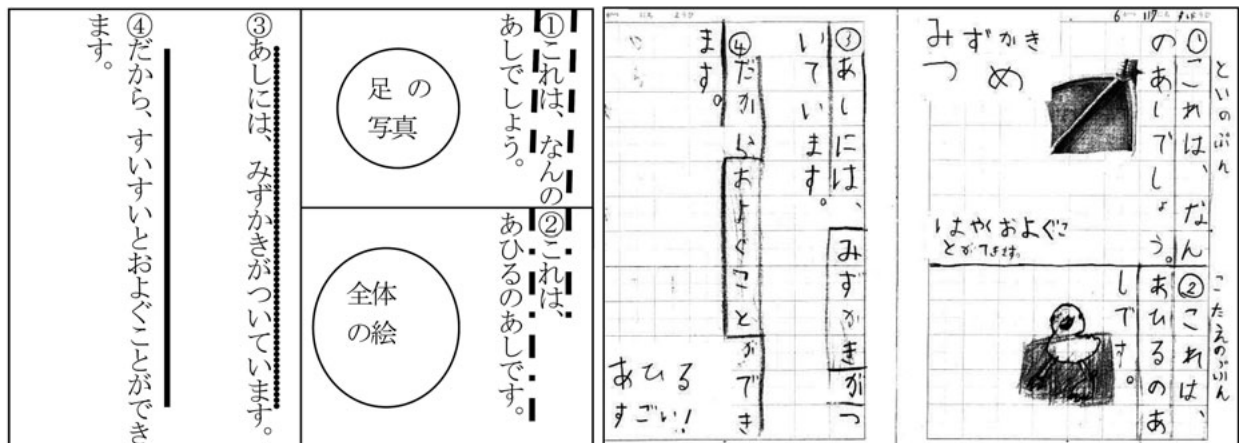 ①これは、なんの
あしでしょう。
足の
写真
②これは、
あひるのあしです。
全体
の絵
③あしには、みずかきがついています。
④だから、すいすいとおよぐことができ
ます。
といのぶん
①これは、なん
のあしでしょう。
みずかき
つめ
はやくおよぐこ
とができます。
こたえのぶん
②これは、
あひるのあ
しです。
③あしには、みずかきがつ
いています。
④だからおよぐことができ
ます。
あひる
すごい!!